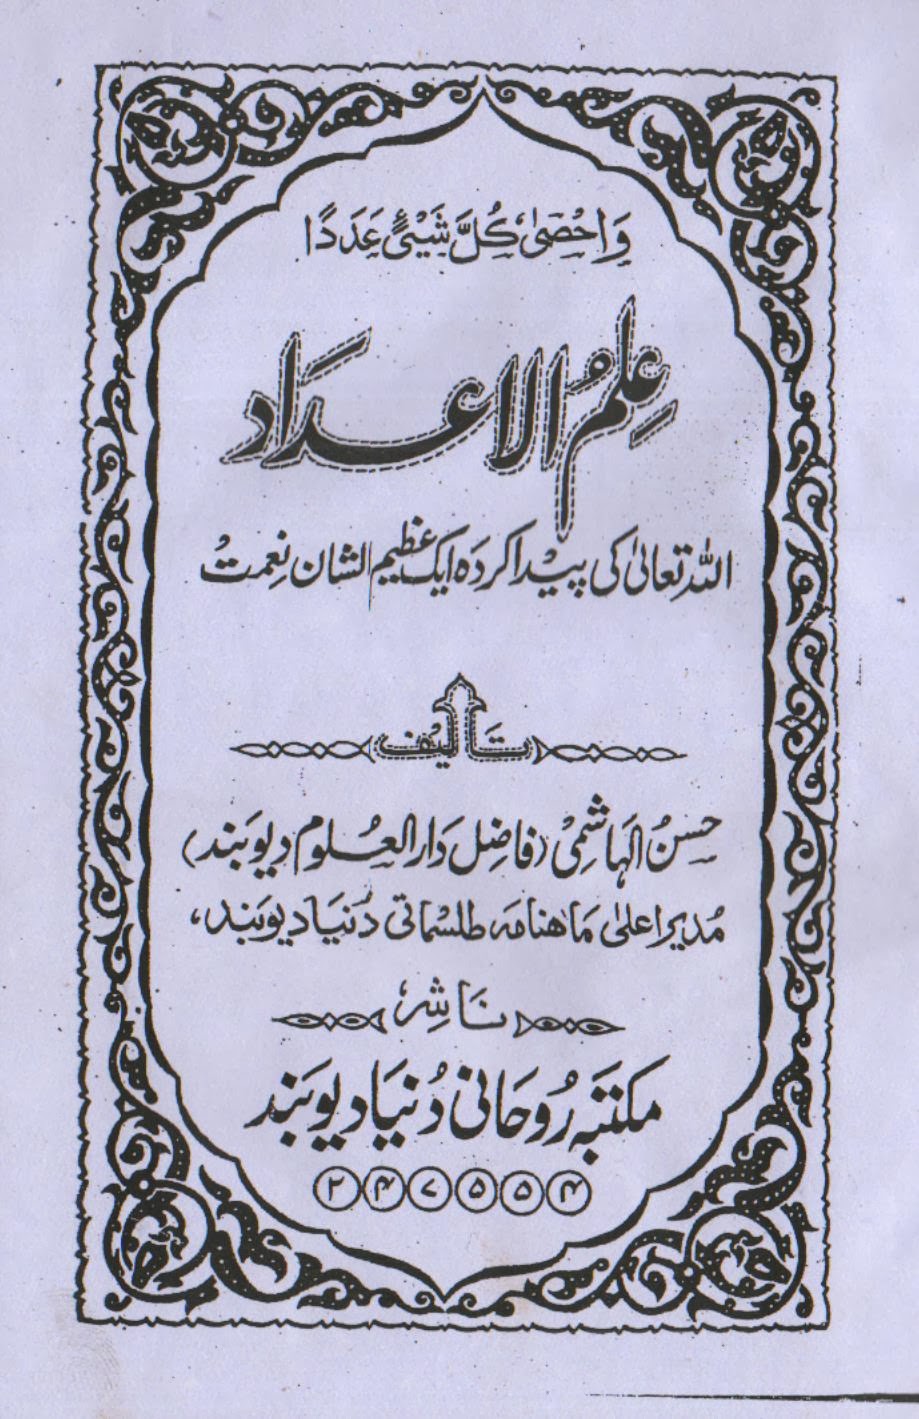 وَاَحْصٰی کُلَّ شَیْئٍ عَدَدًا
عِلمُ الاعداد
اللہ تعالیٰ کی پیدا کردہ ایک عظیم الشان نعمت
تالیف
حسنُ الہاشمی (فاضِل دَارالعلُوم دیوبند)
مُدیر اعلیٰ مَاہنامہ طلسماتی دُنیا دیوبند،
نَاشِر
مکتبَہ رُوحَانی دُنیا دیوبند
۲۴۷۵۵۴